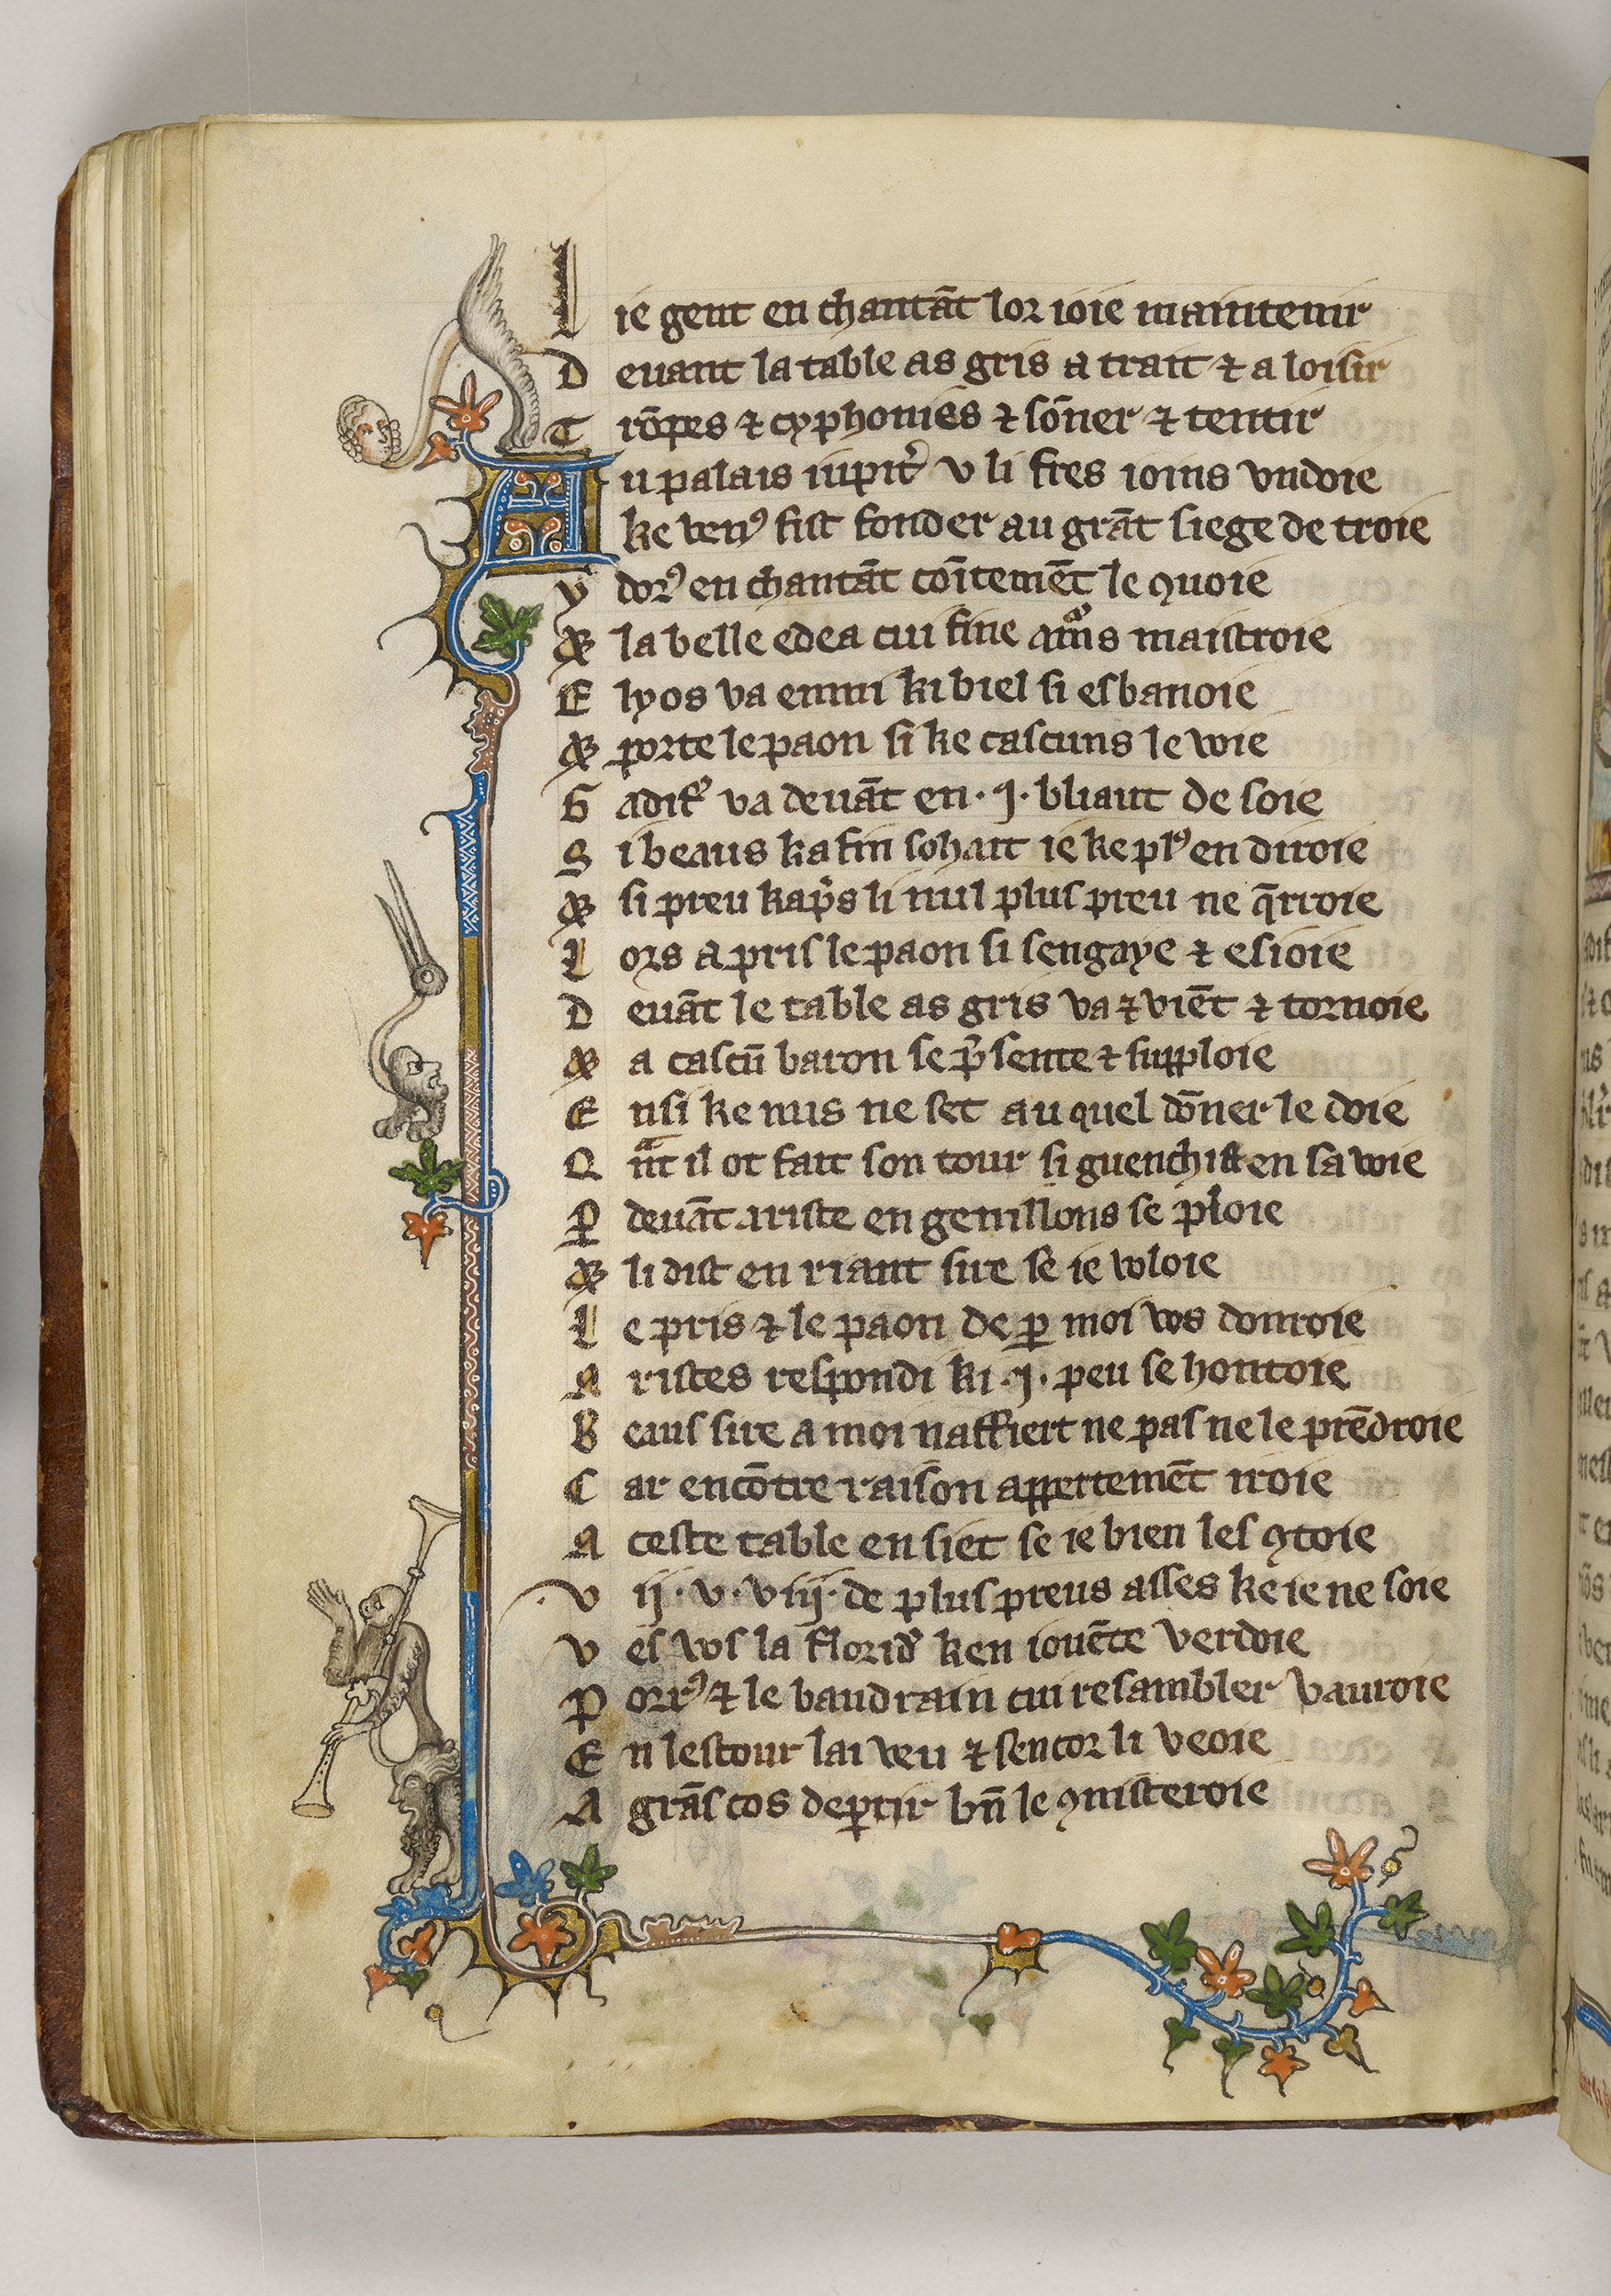 L ie gent en chantāt lor ioie maintenir
D euant la table as gris a trait ⁊ a loisir
T rōpes ⁊ cyphonies ⁊ sōner ⁊ tentir
A u palais iupit̉ v li fres ioins vndoie
ke venꝰ fist fonder au grāt siege de troie
y dorꝰ en chantāt coītemēt le ꝯuoie
⁊ la belle edea cui fine amͦs maistroie
E lyos va enmi ki biel si esbanoie
⁊ porte le paon si ke cascuns le voie
G adifꝰ va deuāt en · I · bliaut de soie
S i beaus ka fin sohait ie ke plꝰ en diroie
⁊ si preu kap̉s li nul plus preu ne q̄rroie
L ors a pris le paon si sengaye ⁊ esioie
D euāt le table as gris va ⁊ viēt ⁊ tornoie
⁊ a cascū baron se p̉sente ⁊ supploie
E nsi ke nus ne set au quel dōner le doie
Q ͣnt il ot fait son tour si guenchist en sa voie
P deuāt ariste en genillons se ploie
⁊ li dist en riant sire se ie voloie
L e pris ⁊ le paon de ꝑ moi vos donroie
A ristes respondi ki · I · peu se hontoie
B eaus sire a moi naffiert ne pas ne le prēdroie
C ar encōtre raison appertemēt iroie
A ceste table en siet se ie bien les ꝯtoie
V ij · v · viij · de plus preus asses ke ie ne soie
V es vos la floridꝰ ken iouēte verdoie
P orrꝰ ⁊ le baudrain cui resambler vauroie
E n lestour lai veu ⁊ sencor li veoie
A grās cos deꝑtir bn̄ le ꝯnisteroie